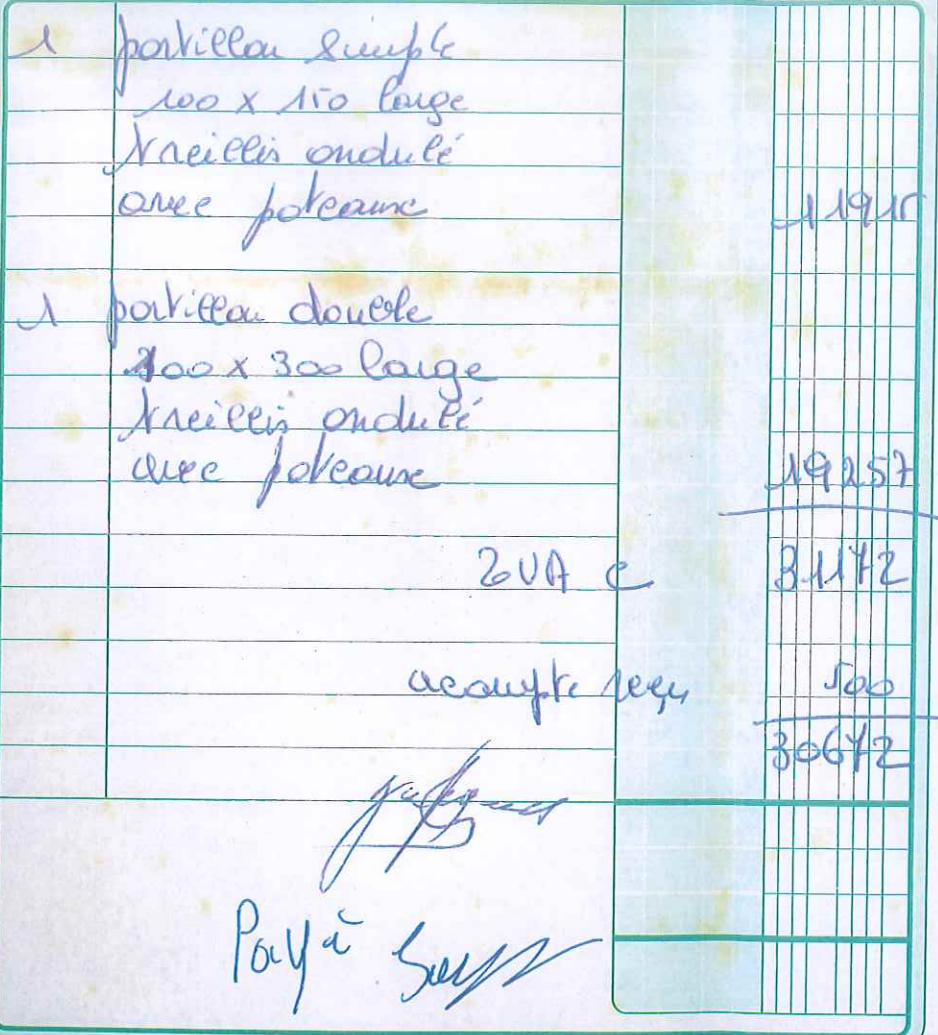 1 portillon simple
100 x 150 large
treillis ondulé
avec poteaux 11915
1 portillon double
100 x 300 large
treillis ondulé
avec poteaux 19257
TVA c 31172
acompte reçu 500
30672
Payé